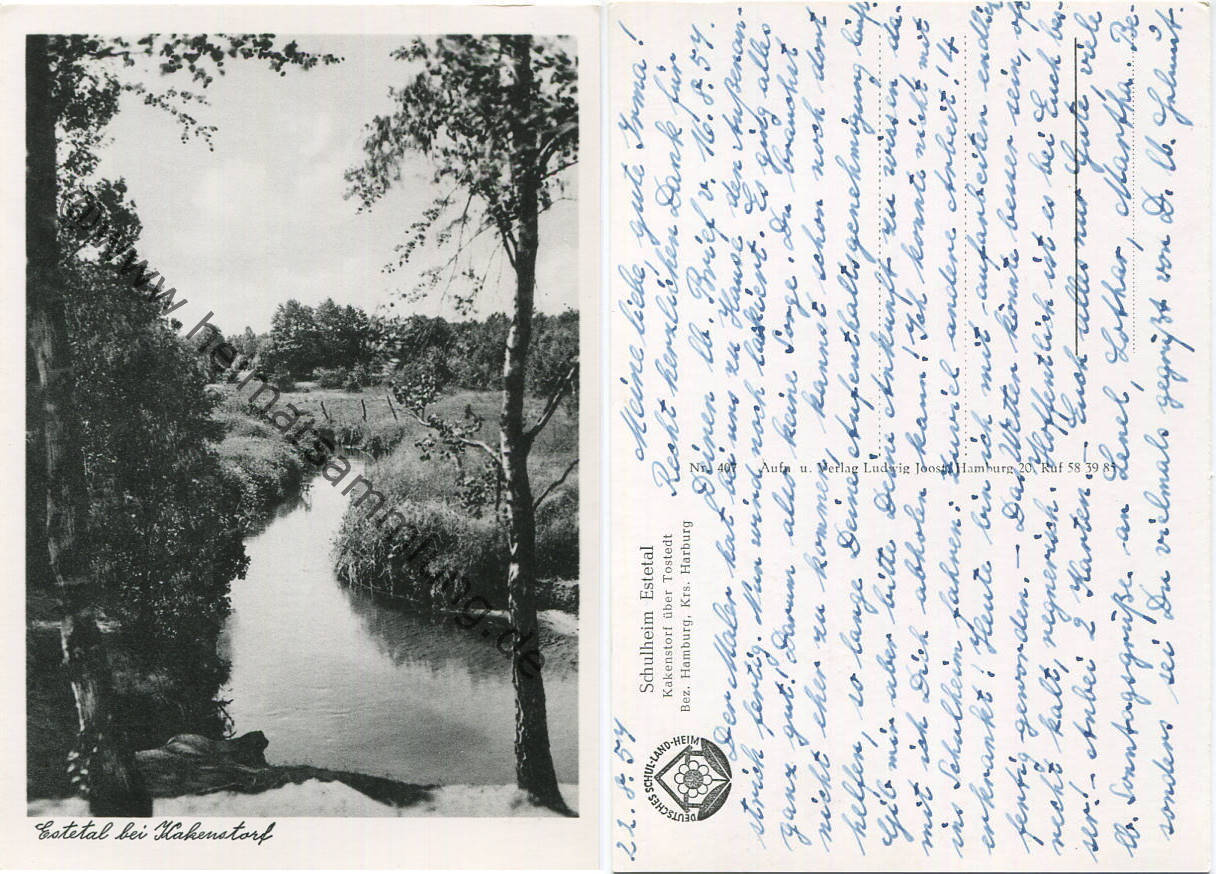 Estetal bei Kakenstorf
www.heimatsammlung.de
Schulheim Estetal
Kakenstorf über Tostedt
Bez. Hamburg, Krs. Harburg
DEUTSCHES SCHUL-LAND-HEIM
Nr. 407 Aufn. u. Verlag Ludwig Joost, Hamburg 20, Ruf 58 39 85
22.8.54
Meine liebe, gute Irma!
Recht herzlichen Dank für
Deinen lb. Brief v. 16.8.54.
Der Maler hat bei uns zu Hause den Außenan-
strich fertig. Nun wird noch lackiert. Es ging alles
ganz gut! Darum also keine Sorge. Du brauchst
nicht eher zu kommen, kannst schon noch dort
helfen, so lange Deine Aufenthaltsgenehmigung läuft
Gib mir aber bitte Deine Ankunft zu wissen, da-
mit ich Dich abholen kann! Ich konnte nicht mit
ins Schulheim fahren: zuviel andere Arbeit! 14
erkrankt! Heute bin ich mit aufarbeiten endlich
fertig geworden. — Das Wetter könnte besser sein, oft
recht kalt, regnerisch. Hoffentlich ist es bei Euch bes-
ser! Anbei 2 Karten. — Euch alles nur Gute, viele
lb. Sonntagsgrüße an Lenel, Lothar, Martha. Be-
sonders sei Du vielmals gegrüßt von D. U. Helmut.